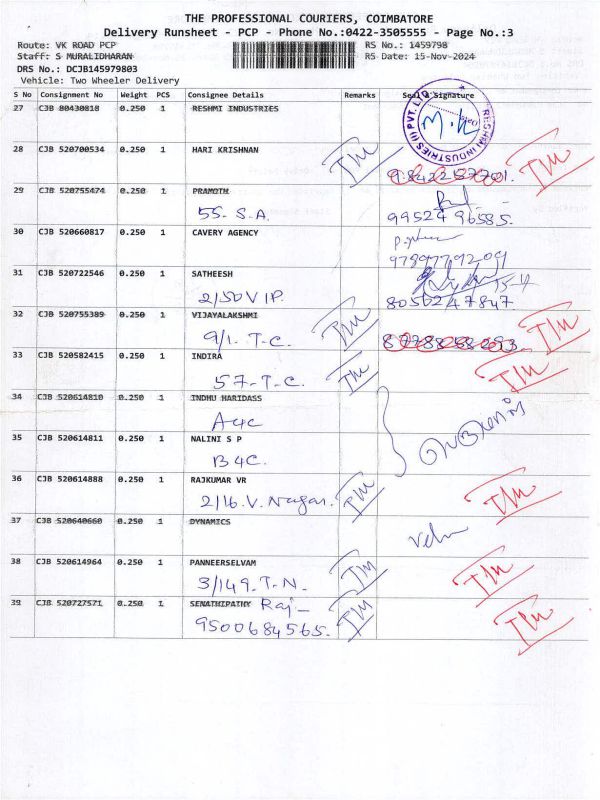 THE PROFESSIONAL COURIERS, COIMBATORE
Delivery Runsheet - PCP - Phone No.:0422-3505555 - Page No.:3
Route: VK ROAD PCP RS No.: 1459798
Staff: S MURALIDHARAN RS Date: 15-Nov-2024
DRS No.: DCJB145979803
Vehicle: Two Wheeler Delivery
S No Consignment No Weight PCS Consignee Details Remarks Seal & Signature
27 CJB 80430818 0.250 1 RESHMI INDUSTRIES
RESHMI INDUSTRIES (I) PVT. LTD.
28 CJB 520700534 0.250 1 HARI KRISHNAN
29 CJB 520755474 0.250 1 PRAMOTH
55. S.A. 9952496585.
30 CJB 520660817 0.250 1 CAVERY AGENCY
31 CJB 520722546 0.250 1 SATHEESH
2/50 V.I.P. 8056247847
32 CJB 520755389 0.250 1 VIJAYALAKSHMI
9/1. T.C.
33 CJB 520582415 0.250 1 INDIRA
57-T.C.
34 CJB 520614810 0.250 1 INDHU HARIDASS
A4C
35 CJB 520614811 0.250 1 NALINI S P
B4C.
36 CJB 520614888 0.250 1 RAJKUMAR VR
2/16. V. Nagar.
37 CJB 520640660 0.250 1 DYNAMICS
38 CJB 520614964 0.250 1 PANNEERSELVAM
3/149. T.N.
39 CJB 520727571 0.250 1 SENATHIPATHY Raj
9500684565.